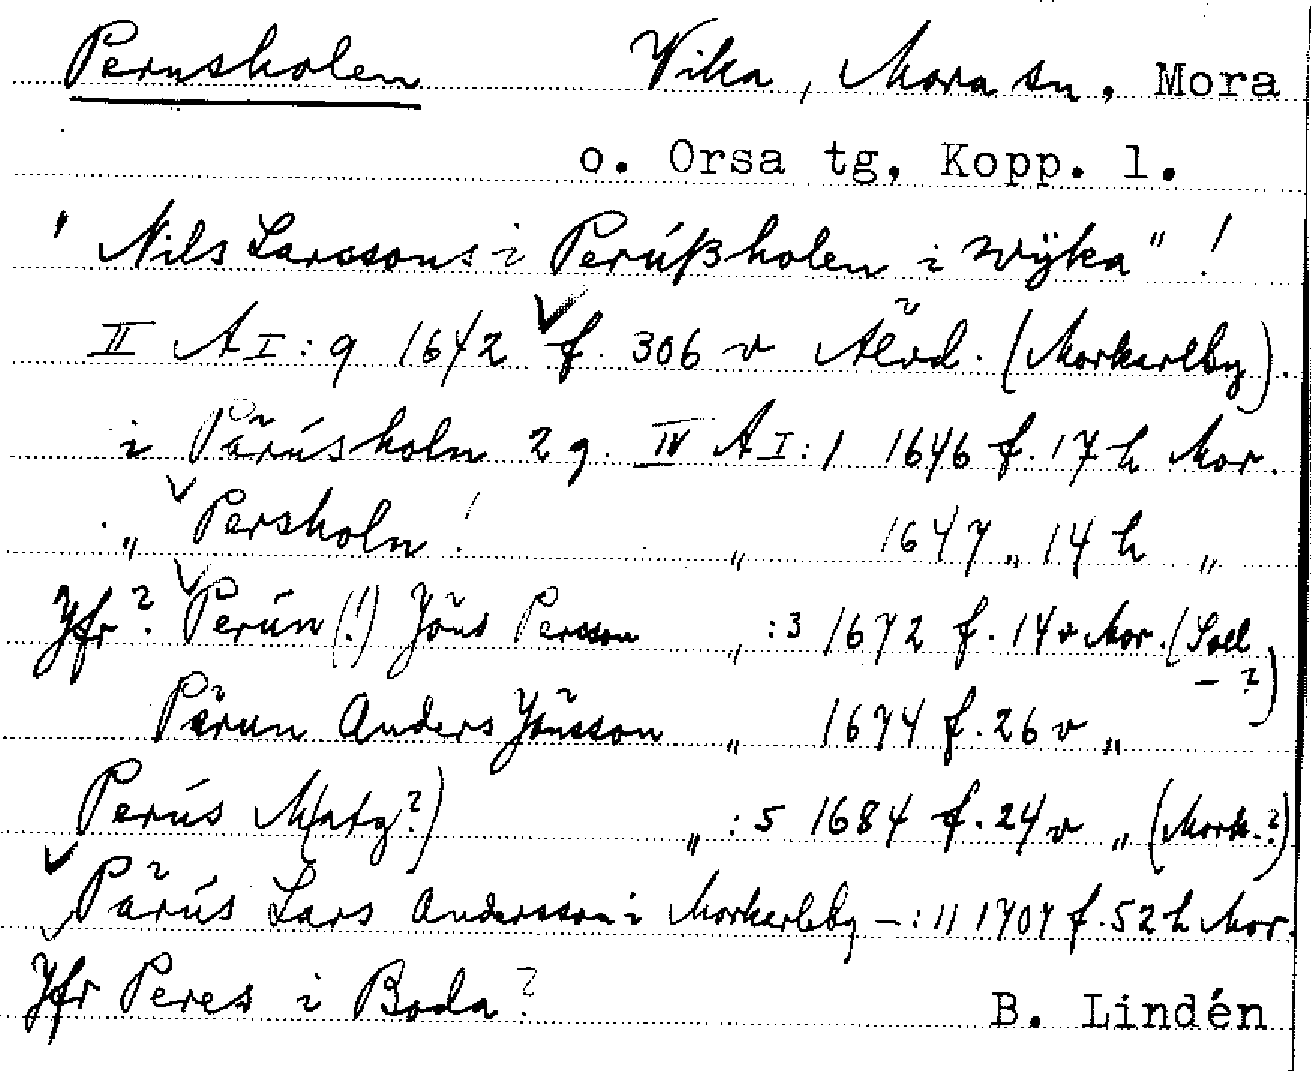 Perusholen Vika, Mora sn. Mora
o. Orsa tg, Kopp. l.
" Nils Larssons i Perúßholen i wÿka" !
II A I : 9 1642 f. 306 v Älvd. (Morkarlby).
i Pärúsholn 2 g. IV A I : 1 1646 f. 17 h Mor.
" Persholn ! " 1647 " 14 h "
Jfr ? Perún (!) Jöns Persson " : 3 1672 f. 14 v Mor. (Soll
– ?)
Pärun Anders Jönsson " 1674 f. 26 v "
Perús M(atz ?) " : 5 1684 f. 24 v " (Mork. ?)
Pärús Lars Andersson i Morkarlby – : 11 1707 f. 52 h Mor.
Jfr Peres i Boda ? B. Lindén